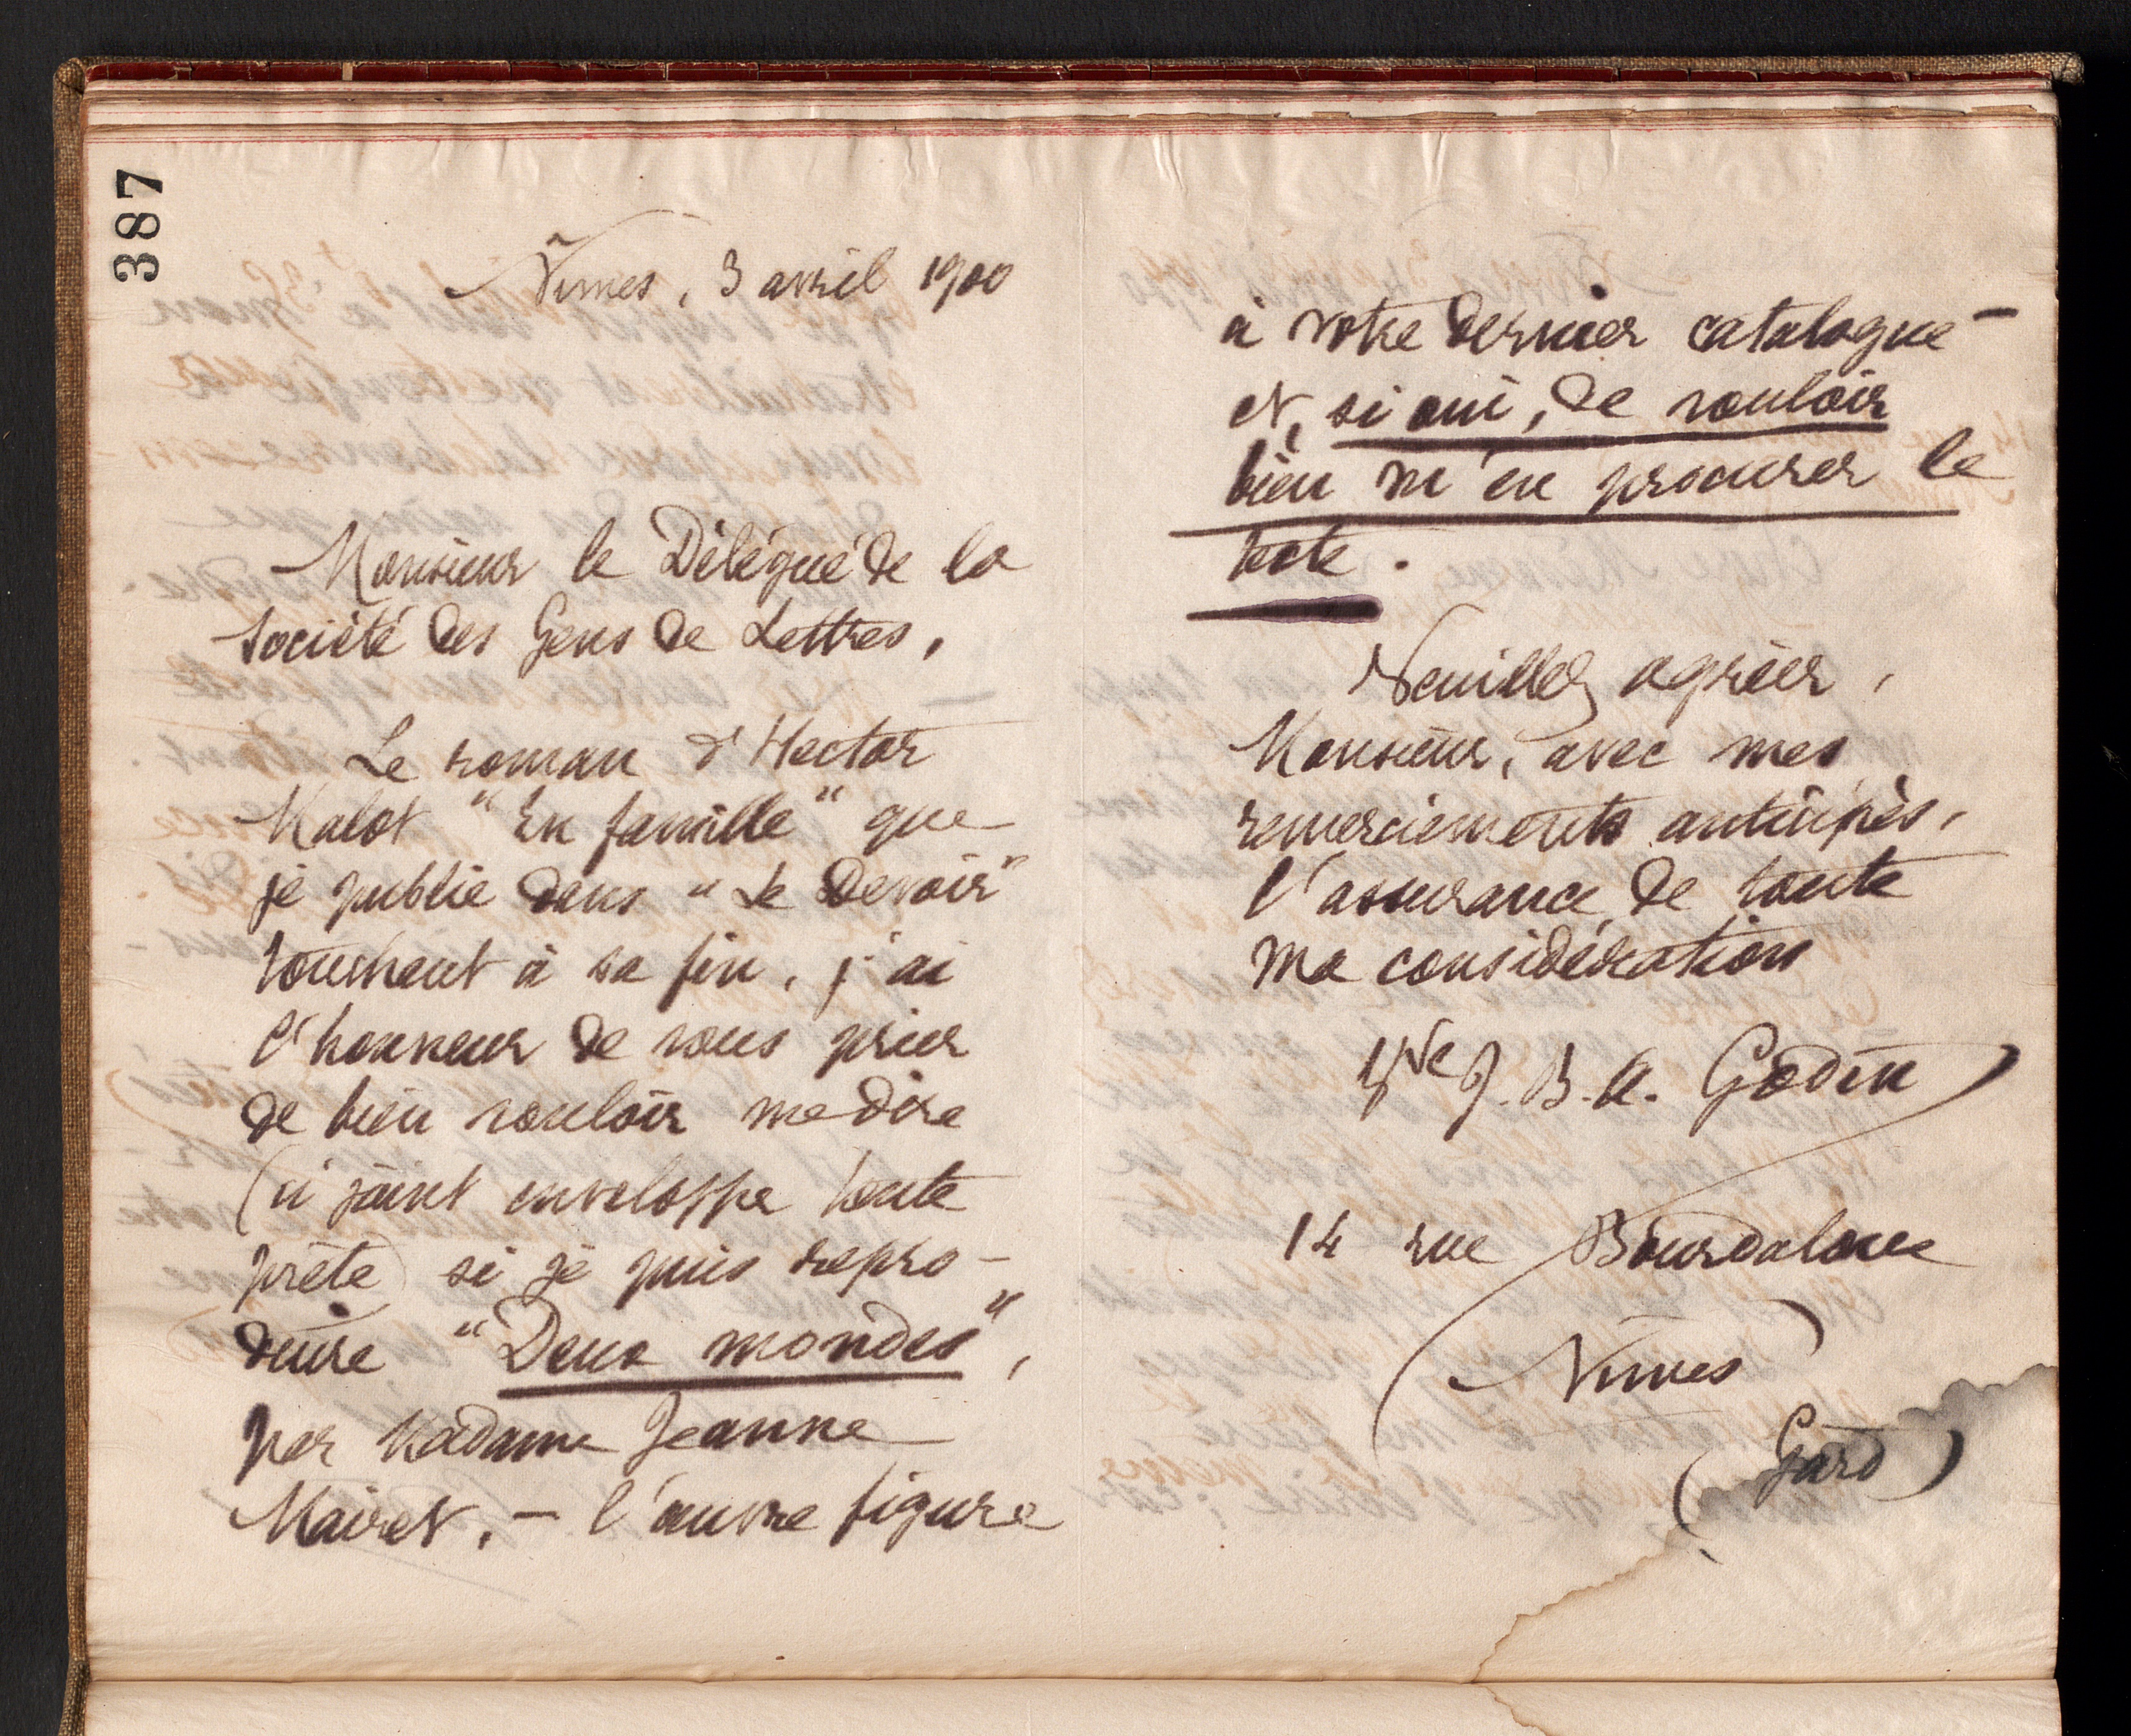 387
Nîmes, 3 avril 1900
Monsieur le Délégué de la
Société des Gens de Lettres,
Le roman d'Hector
Malot "En famille" que
je publie dans "Le Devoir"
touchant à sa fin, j'ai
l'honneur de vous prier
de bien vouloir me dire
(ci joint enveloppe toute
prête) si je puis repro-
duire "Deux mondes",
par Madame Jeanne
Mairet, - l'œuvre figure
à votre dernier catalogue -
et, si oui, de vouloir
bien m'en procurer le
texte.
Veuillez agréer,
Monsieur, avec mes
remerciements anticipés,
l'assurance de toute
ma considération
Vve J. B. A. Godin
14 rue Bourdaloue
Nîmes
(Gard)